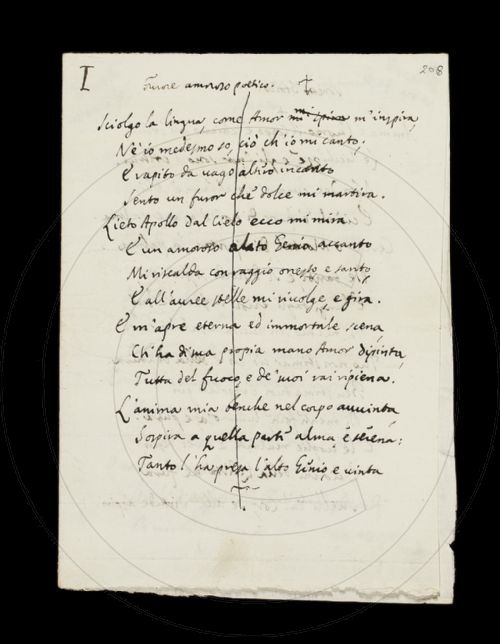 I
208
Furore amoroso poetico.
Sciolgo la lingua, come Amor mi spira m'inspira,
Ne' io medesmo so, ciò ch'io mi canto;
E rapito da vago altiro incanto
Sento un furor che dolce mi martira.
Lieto Apollo dal Cielo ecco mi mira
E un amoroso alato Genio accanto
Mi riscalda con raggio onesto e santo
E all'auree stelle mi rivolge, e gira.
E m'apre eterna ed immortale scena,
Ch'ha di sua propia mano Amor dipinta,
Tutta del fuoco e de' suoi rai ripiena.
L'anima mia benche nel corpo avvinta,
Sospira a quella parti alma e serena:
Tanto l'ha presa l'alto Genio e vinta